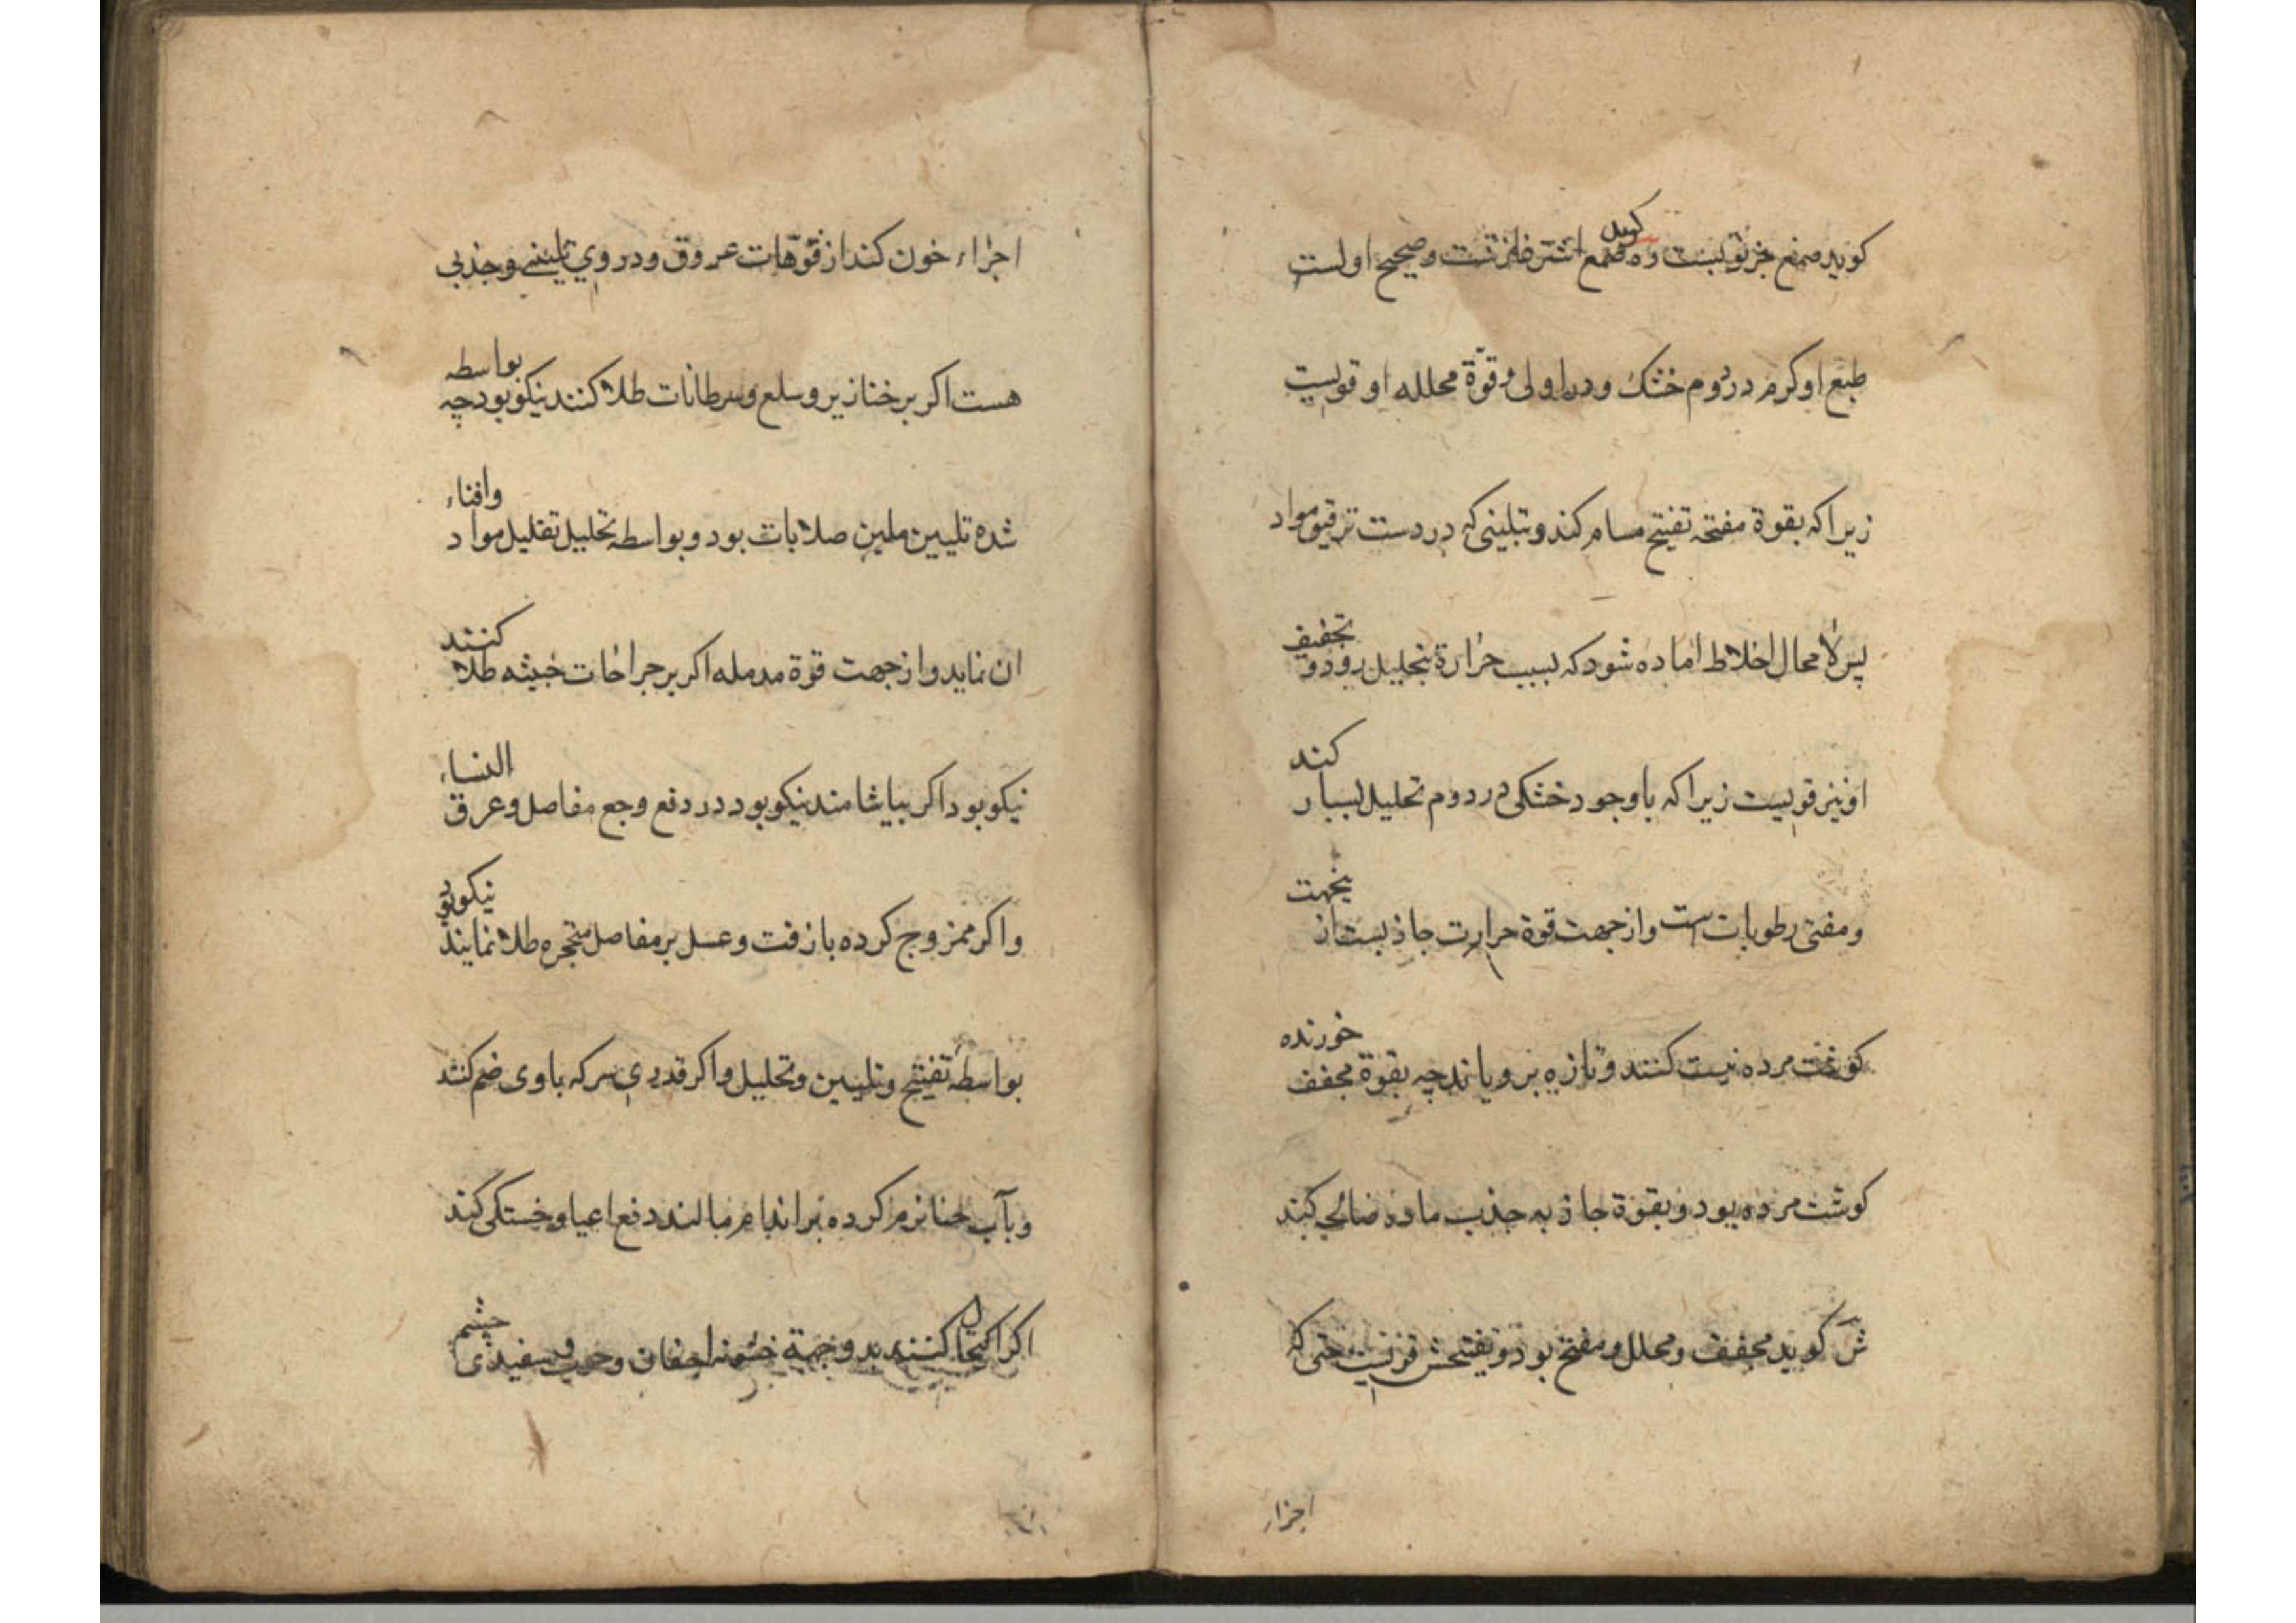 كويد صمغ خربقيست و ه كويند صمغ اشترغازتست وصحيح اولست
طبع او كرم در دوم خشك ودر اولى وقوّة محلله او قويست
زيرا كه بقوة مفتحه تفتيح مسام كند وبتلينى كه دردست ترقيق مواد
پس لا محال اخلاط اماده شود كه بسبب حرارة بتحليل رود و تجفيف
او نيز قويست زيرا كه باوجود خشكى در دوم تحليل بسيار كند
ومفنى رطوبات ست واز جهت قوة حرارت جاذبست از ينجهت
كوشت مرده نيست كنند وتازه بروياند چه بقوة مجفف خورنده
كوشت مرده بود وبقوة جاذبه جذب ماده صالحه كند
ش كويد مجفف ومحلل ومفتح بود وتفتيحش قويست حتى كه
اجراء
اجراء خون كند از فوّهات عروق ودر وي تلينى وجذبى
هست اكر بر خنازير وسلع وسرطانات طلا كنند نيكو بود چه بواسطه
شده تليين ملين صلابات بود وبواسطه تحليل تقليل مواد وافناء
ان نمايد واز جهت قوة مدمله اكر بر جراحات خبيثه طلا كنند
نيكو بود اكر بياشامند نيكو بود در دفع وجع مفاصل وعرق النساء
واكر ممزوج كرده با زفت وعسل بر مفاصل متحجره طلا نمايند نيكو بود
بواسطه تفتيح وتليين وتحليل واكر قدري سركه با وى ضم كنند
وبآب حنا نرم كرده بر اندام مالند دفع اعيا وخستكى كند
اكر اكتحال كنند بدو جهة خشونه اجفان وجرب وسفيدى چشم